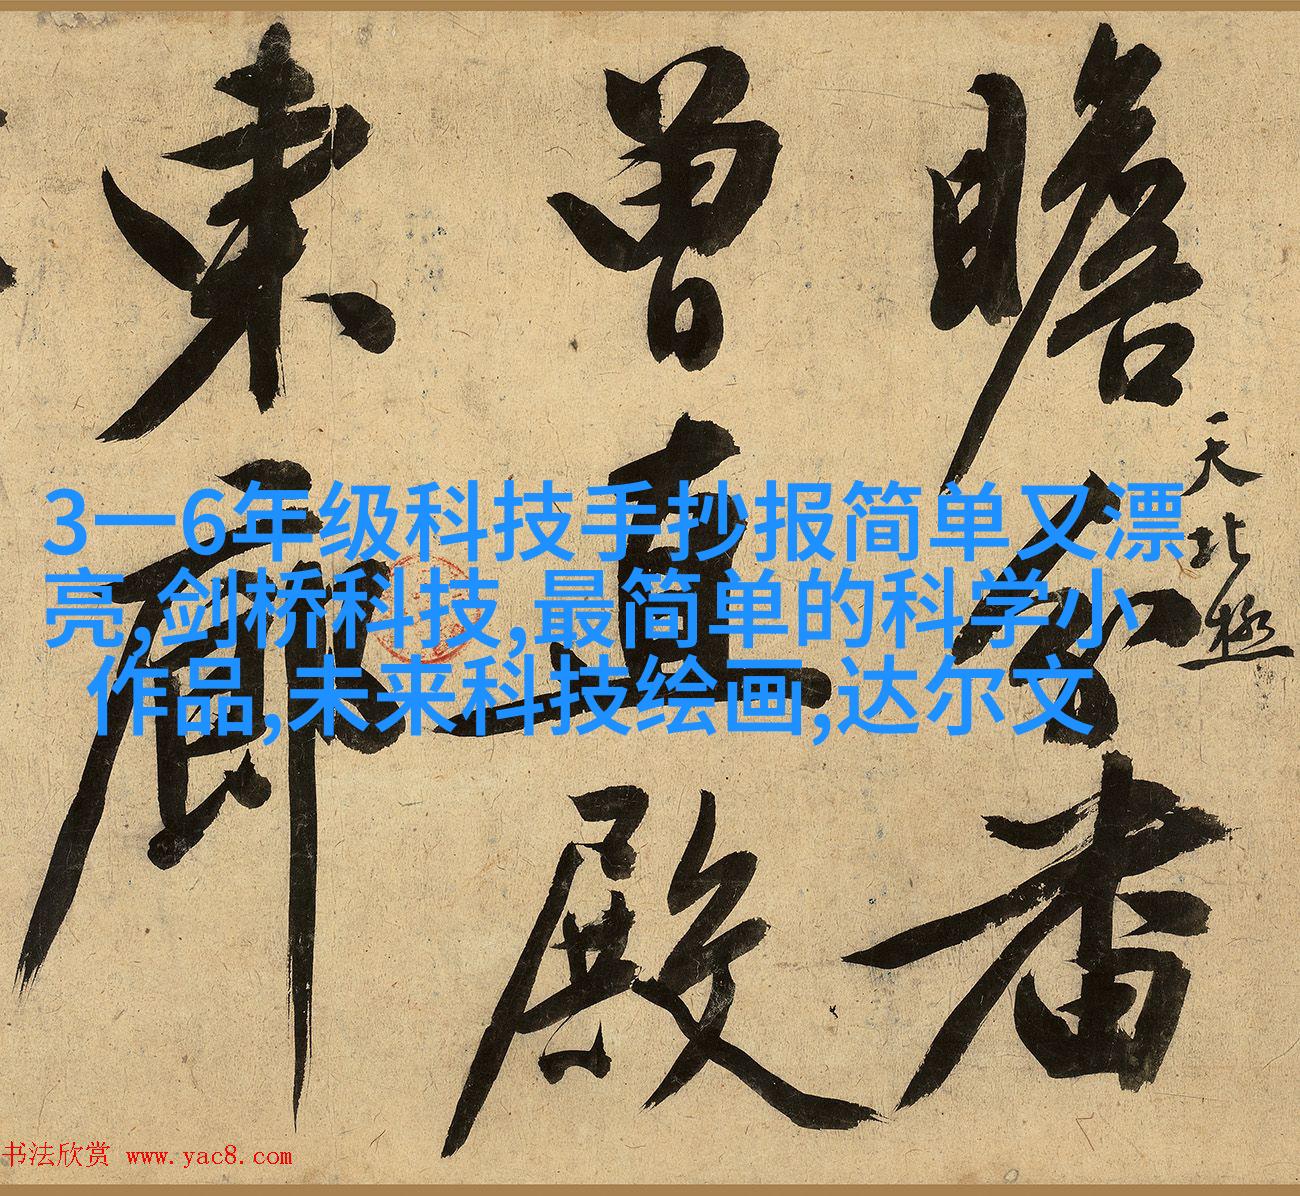 3一6年级科技手抄报简单又漂
亮,剑桥科技,最简单的科学小
作品,未来科技绘画,达尔文
瞻
天北極
曾直殿
東廊
书法欣赏 www.yac8.com